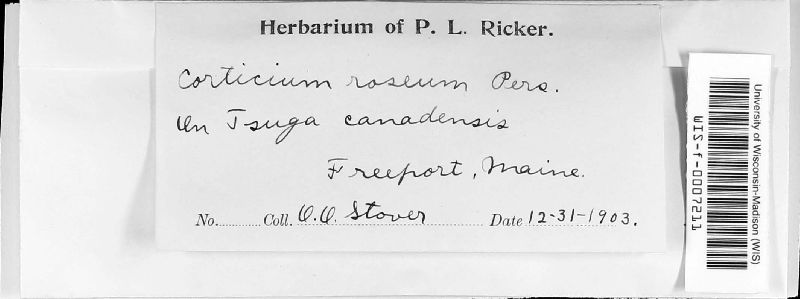 Herbarium of P. L. Ricker.
Corticium roseum Pers.
On Tsuga canadensis
Freeport, Maine.
No. Coll. O.O. Stover Date 12-31-1903.
University of Wisconsin-Madison (WIS)
WIS-f-0007211